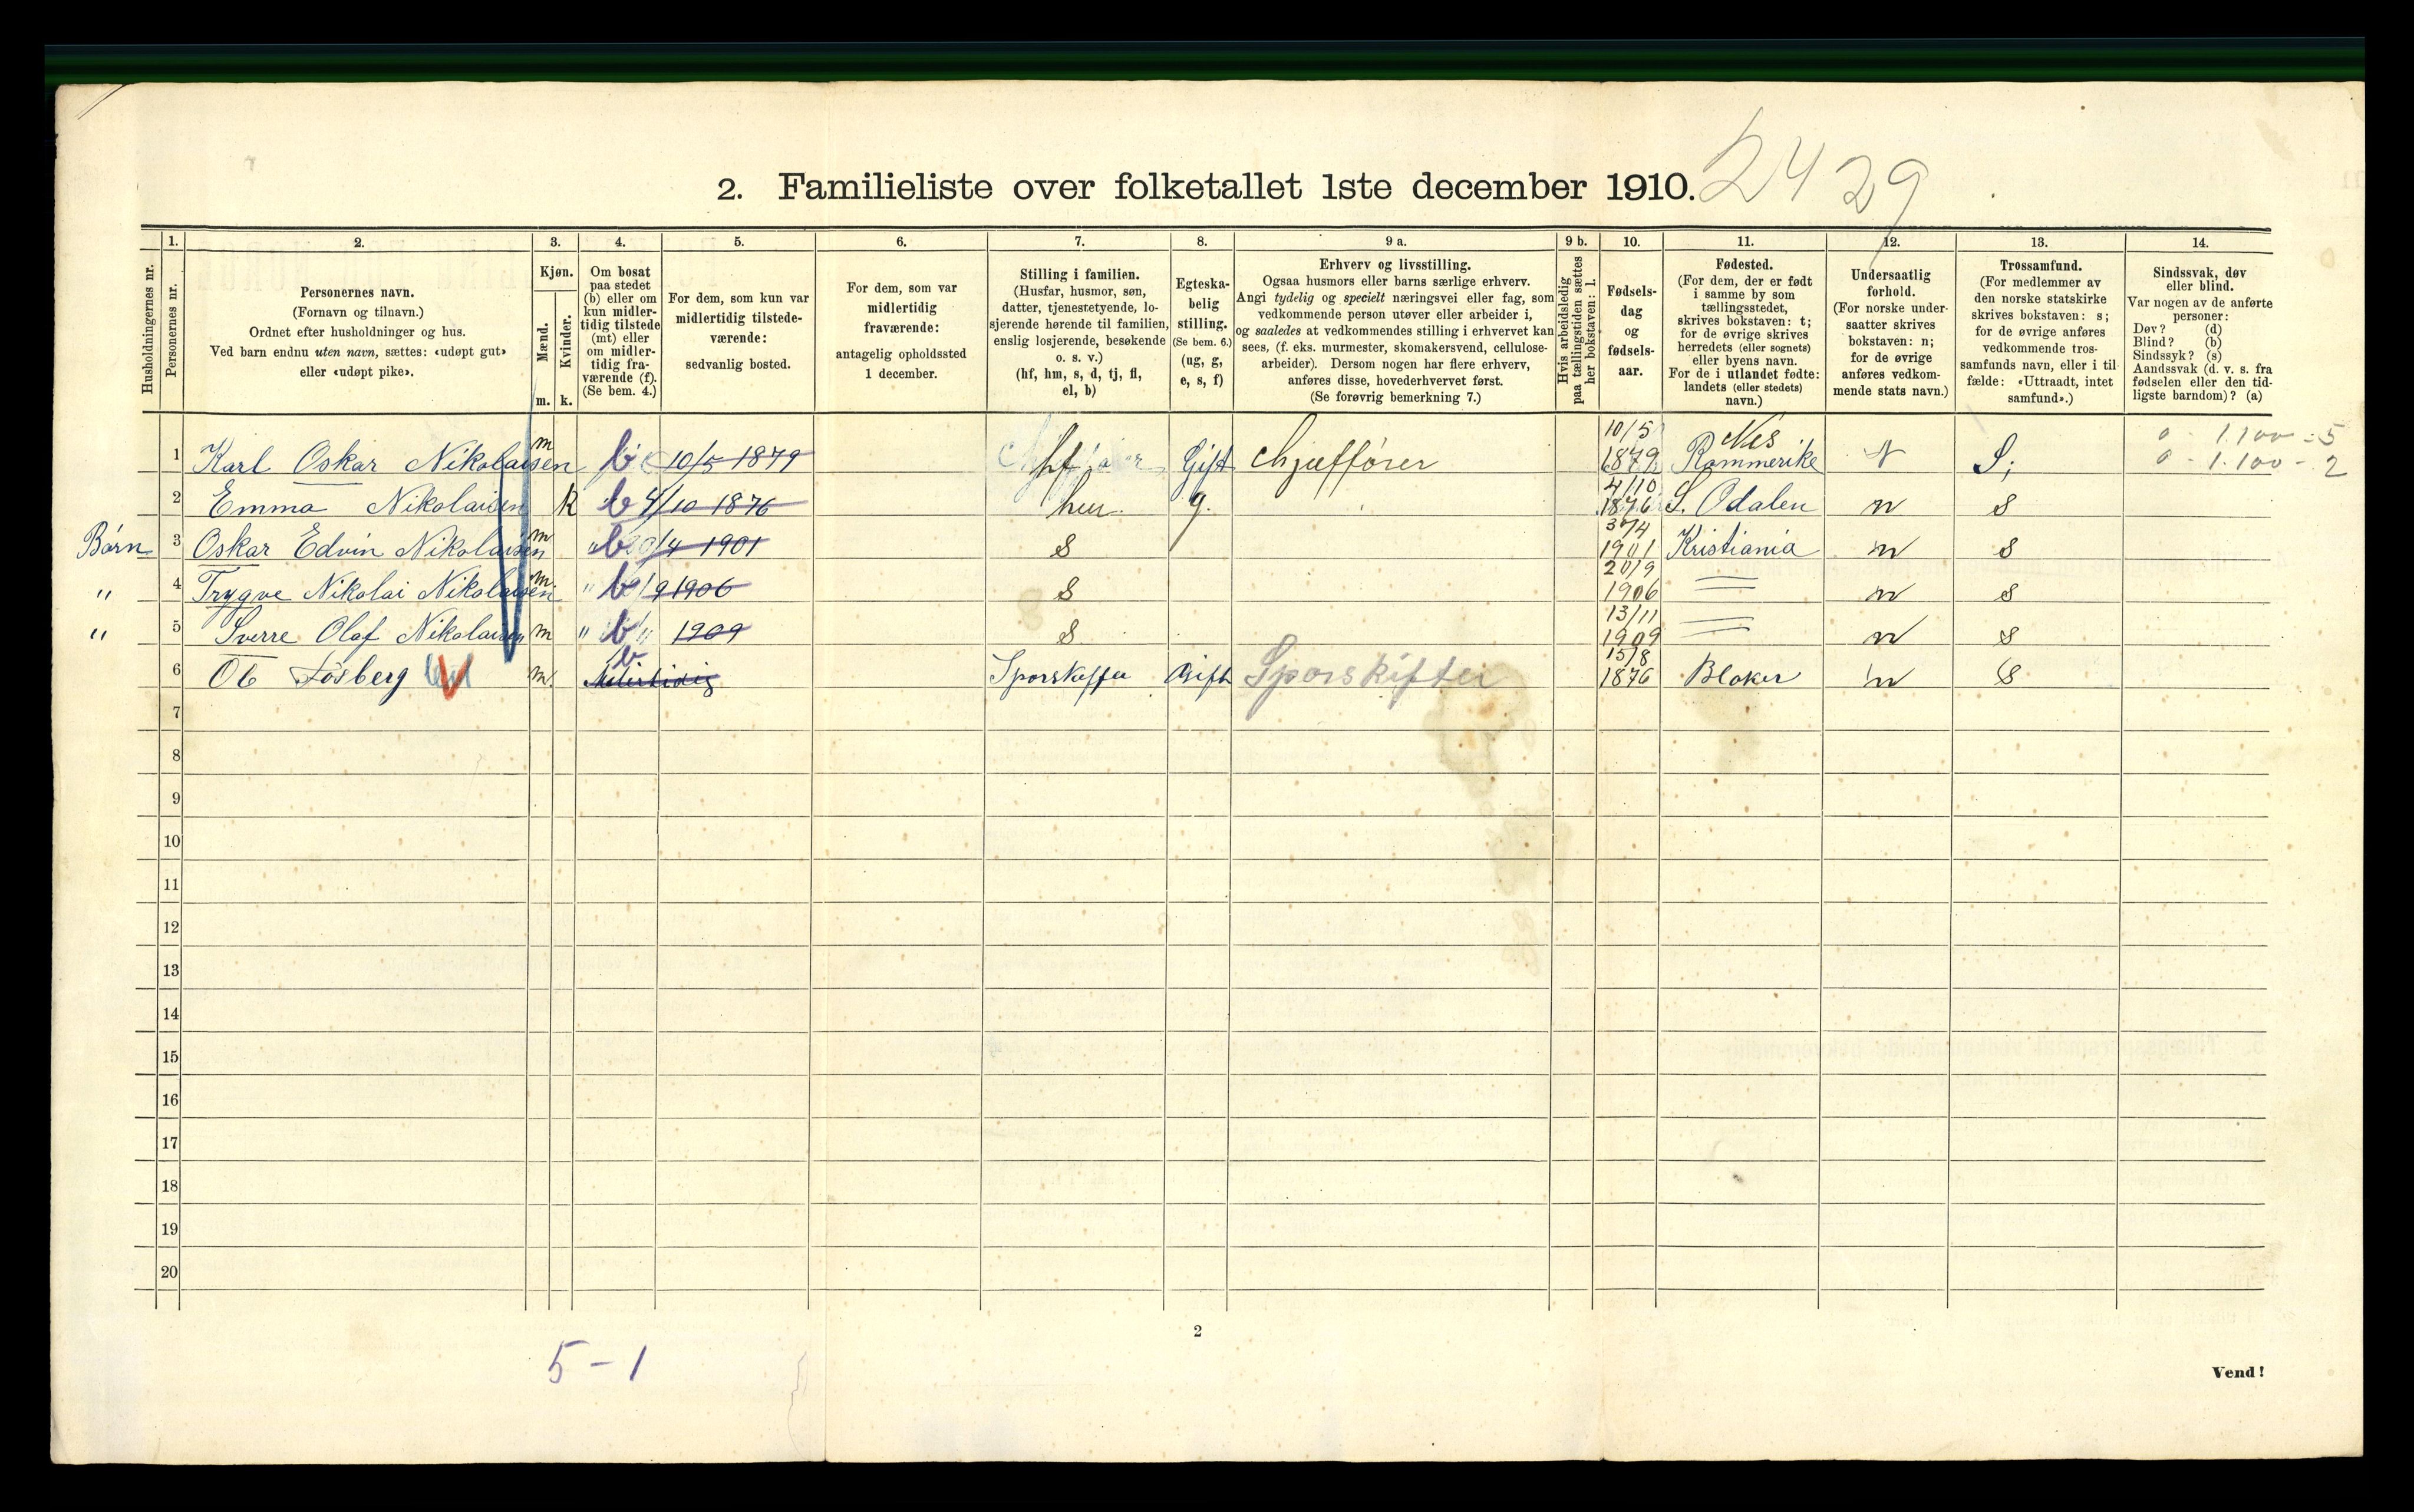 2. Familieliste over folketallet 1ste december 1910. 2429
Husholdningernes nr.
1. Personernes nr.
2. Personernes navn.
(Fornavn og tilnavn.)
Ordnet efter husholdninger og hus.
Ved barn endnu uten navn, sættes: «udøpt gut»
eller «udøpt pike».
3. Kjøn.
Mænd. Kvinder.
m. k.
4. Om bosat
paa stedet
(b) eller om
kun midler-
tidig tilstede
(mt) eller
om midler-
tidig fra-
værende (f).
(Se bem. 4.)
5. For dem, som kun var
midlertidig tilstede-
værende:
sedvanlig bosted.
6. For dem, som var
midlertidig
fraværende:
antagelig opholdssted
1 december.
7. Stilling i familien.
(Husfar, husmor, søn,
datter, tjenestetyende, lo-
sjerende hørende til familien,
enslig losjerende, besøkende
o. s. v.)
(hf, hm, s, d, tj, fl,
el, b)
8. Egteska-
belig
stilling.
(Se bem. 6.)
(ug, g,
e, s, f)
9 a. Erhverv og livsstilling.
Ogsaa husmors eller barns særlige erhverv.
Angi tydelig og specielt næringsvei eller fag, som
vedkommende person utøver eller arbeider i,
og saaledes at vedkommendes stilling i erhvervet kan
sees, (f. eks. murmester, skomakersvend, cellulose-
arbeider). Dersom nogen har flere erhverv,
anføres disse, hovederhvervet først.
(Se forøvrig bemerkning 7.)
9 b. Hvis arbeidsledig
paa tællingstiden sættes
her bokstaven: l.
10. Fødsels-
dag
og
fødsels-
aar.
11. Fødested.
(For dem, der er født
i samme by som
tællingsstedet,
skrives bokstaven: t;
for de øvrige skrives
herredets (eller sognets)
eller byens navn.
For de i utlandet fødte:
landets (eller stedets)
navn.)
12. Undersaatlig
forhold.
(For norske under-
saatter skrives
bokstaven: n;
for de øvrige
anføres vedkom-
mende stats navn.)
13. Trossamfund.
(For medlemmer av
den norske statskirke
skrives bokstaven: s;
for de øvrige anføres
vedkommende tros-
samfunds navn, eller i til-
fælde: «Uttraadt, intet
samfund».)
14. Sindssvak, døv
eller blind.
Var nogen av de anførte
personer:
Døv? (d)
Blind? (b)
Sindssyk? (s)
Aandssvak (d. v. s. fra
fødselen eller den tid-
ligste barndom)? (a)
1 Karl Oskar Nikolaisen m b 10/5 1879 hf Gift Chjaffører 10/5 1879 Nes Rommerike N S; 0 - 1.100 - 5
0 - 1.100 - 2
2 Emma Nikolaisen k b 4/10 1876 hm g. 4/10 1876 S. Odalen n s
Børn 3 Oskar Edvin Nikolaisen m " b 30/4 1901 s 30/4 1901 Kristiania n s
" 4 Trygve Nikolai Nikolaisen m. " b /9 1906 s 20/9 1906 = n s
" 5 Sverre Olaf Nikolaisen m " b 1909 s 13/11 1909 = n s
6 Ole Løsberg m. b Midlertidig Sporskifter Gift Sporskifter 15/8 1876 Blaker n S
7
8
9
10
11
12
13
14
15
16
17
18
19
20
2
5 - 1
Vend!